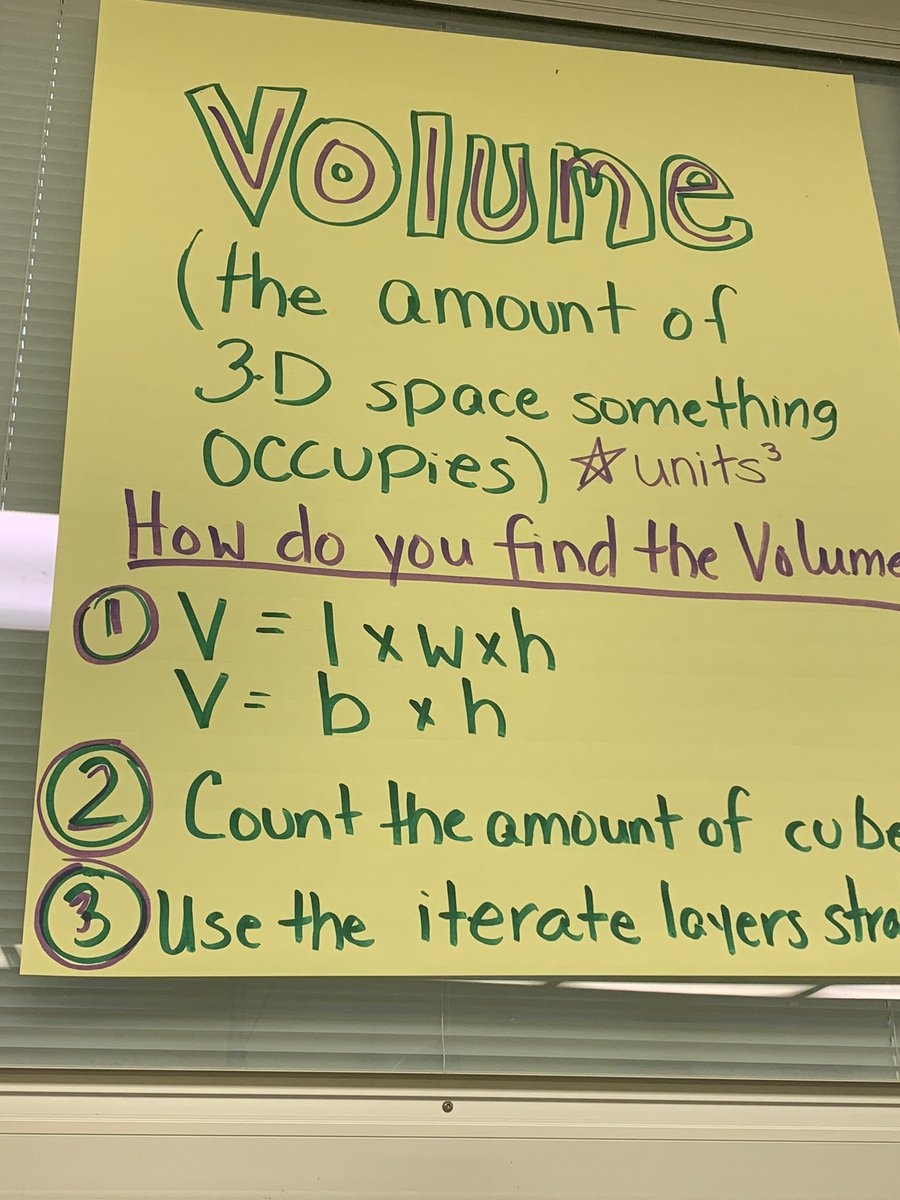 Volume
(the amount of
3-D space something
occupies) ☆ units³
How do you find the Volume
1 V = l x w x h
V = b x h
2 Count the amount of cube
3 Use the iterate layers stra